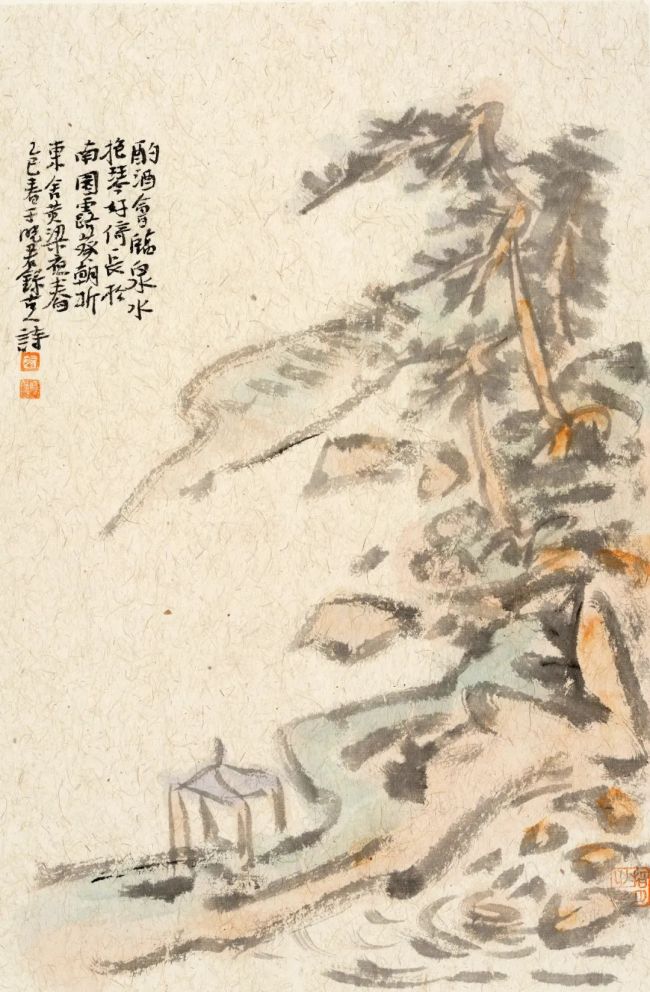 酌酒會臨泉水
抱琴好倚長松
南園露葵朝折
東舍黄粱夜舂
乙巳春于君錄古人詩